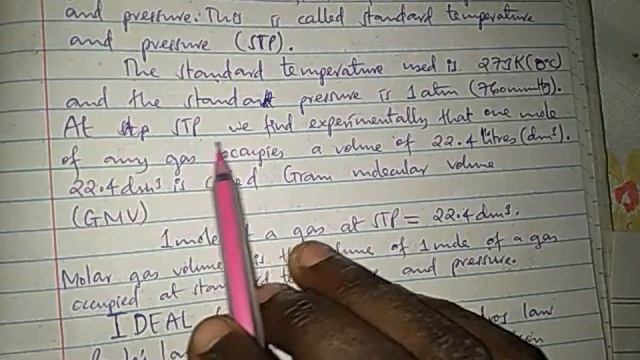 and pressure. This is called standard temperature
and pressure (STP).
The standard temperature used is 273K(0°C)
and the standard pressure is 1 atm (760mmHg).
At STP we find experimentally that one mole
of any gas occupies a volume of 22.4 litres (dm³).
22.4dm³ is Gram molecular volume
(GMV)
1 mole a gas at STP = 22.4dm³.
Molar gas volume is volume of 1mole of a gas
occupied at and pressure.
IDEAL law